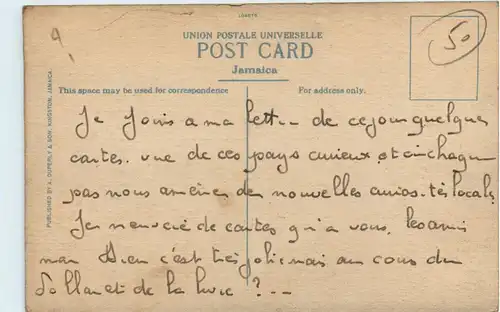 UNION POSTALE UNIVERSELLE
POST CARD
Jamaica
This space may be used for correspondence
For address only.
PUBLISHED BY A. DUPERLY & SON, KINGSTON, JAMAICA.
50
Je Joins a ma lettre de ce jour quelques
cartes. vue de ces pays curieux. et chaque
pas nous amène de nouvelles curiosités locales
de cartes qu'a vous, les amis
Dieu c'est très joli mais au cours du
Dollar et de la livre ? --